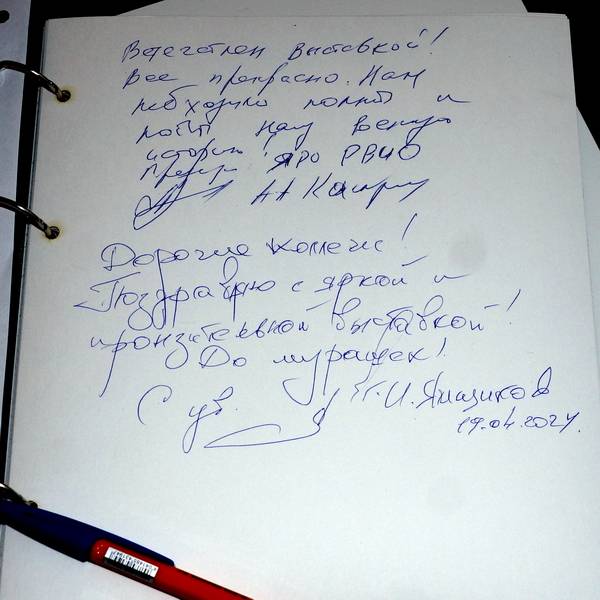 Впечатлен выставкой!
Все прекрасно. Нам
необходимо помнить и
нашу великую
историю
ЯРО РВИО
А.А.
Дорогие коллеги!
Поздравляю с яркой и
пронзительной выставкой!
До мурашек!
С ув.
19.04.2024.